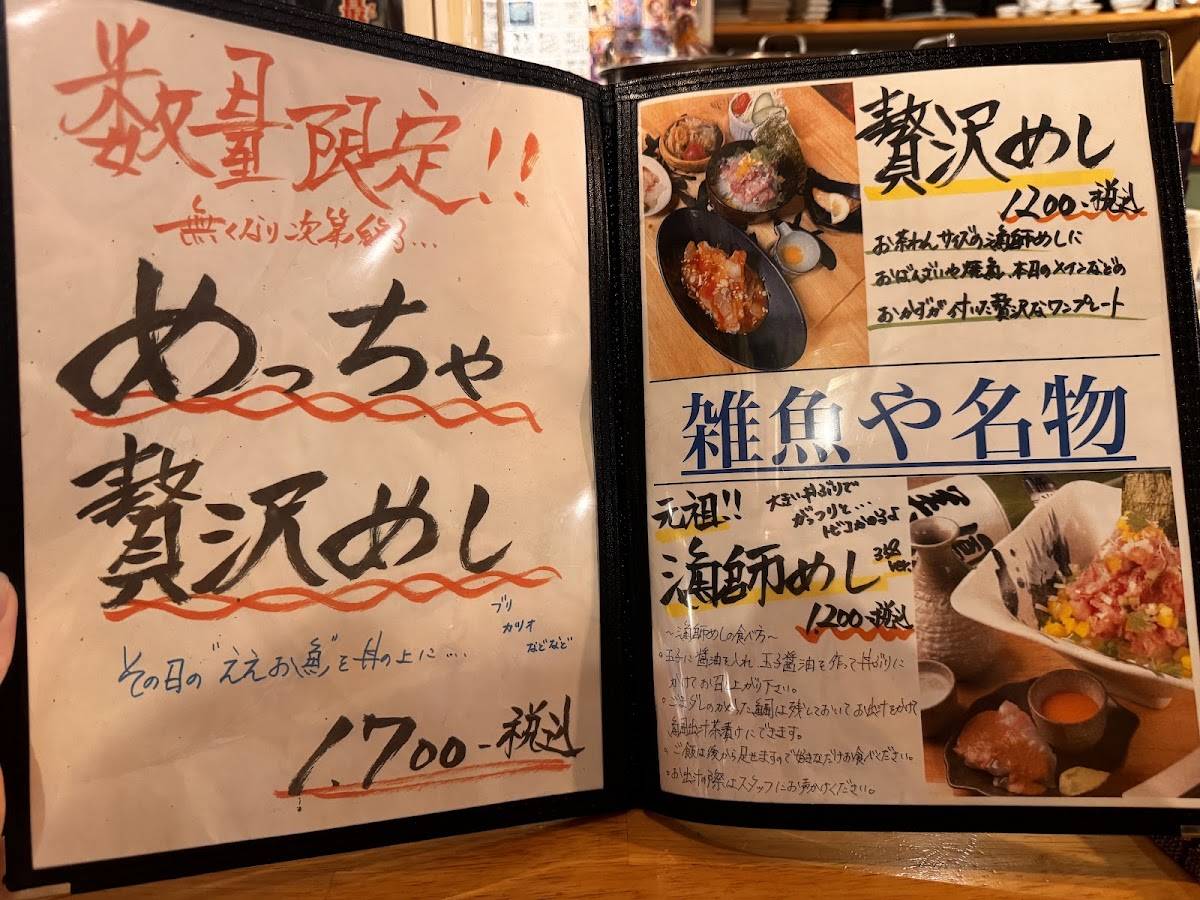 数量限定!!
無くなり次第終了...
めっちゃ
贅沢めし
ブリ
カツオ
などなど
その日の"ええお魚"を丼の上に....
1.700-税込
贅沢めし
1.200-税込
お茶わんサイズの漁師めしに
おばんざいや焼魚、本日のメインなどの
おかずが付いた贅沢なワンプレート
雑魚や名物
元祖!!
大きい丼ぶりで
がっつりと...
漁師めし
1.200-税込
〜漁師めしの食べ方〜
。玉子に醤油を入れ、玉子醤油を作って丼ぶりに
かけてお召し上がり下さい。
。ごまダレのかかった鯛は残しておいてお出汁をかけて
鯛出汁茶漬けにできます。
。ご飯は後から足せますので好きなだけお食べください。
。お出汁の際はスタッフにお声かけください。